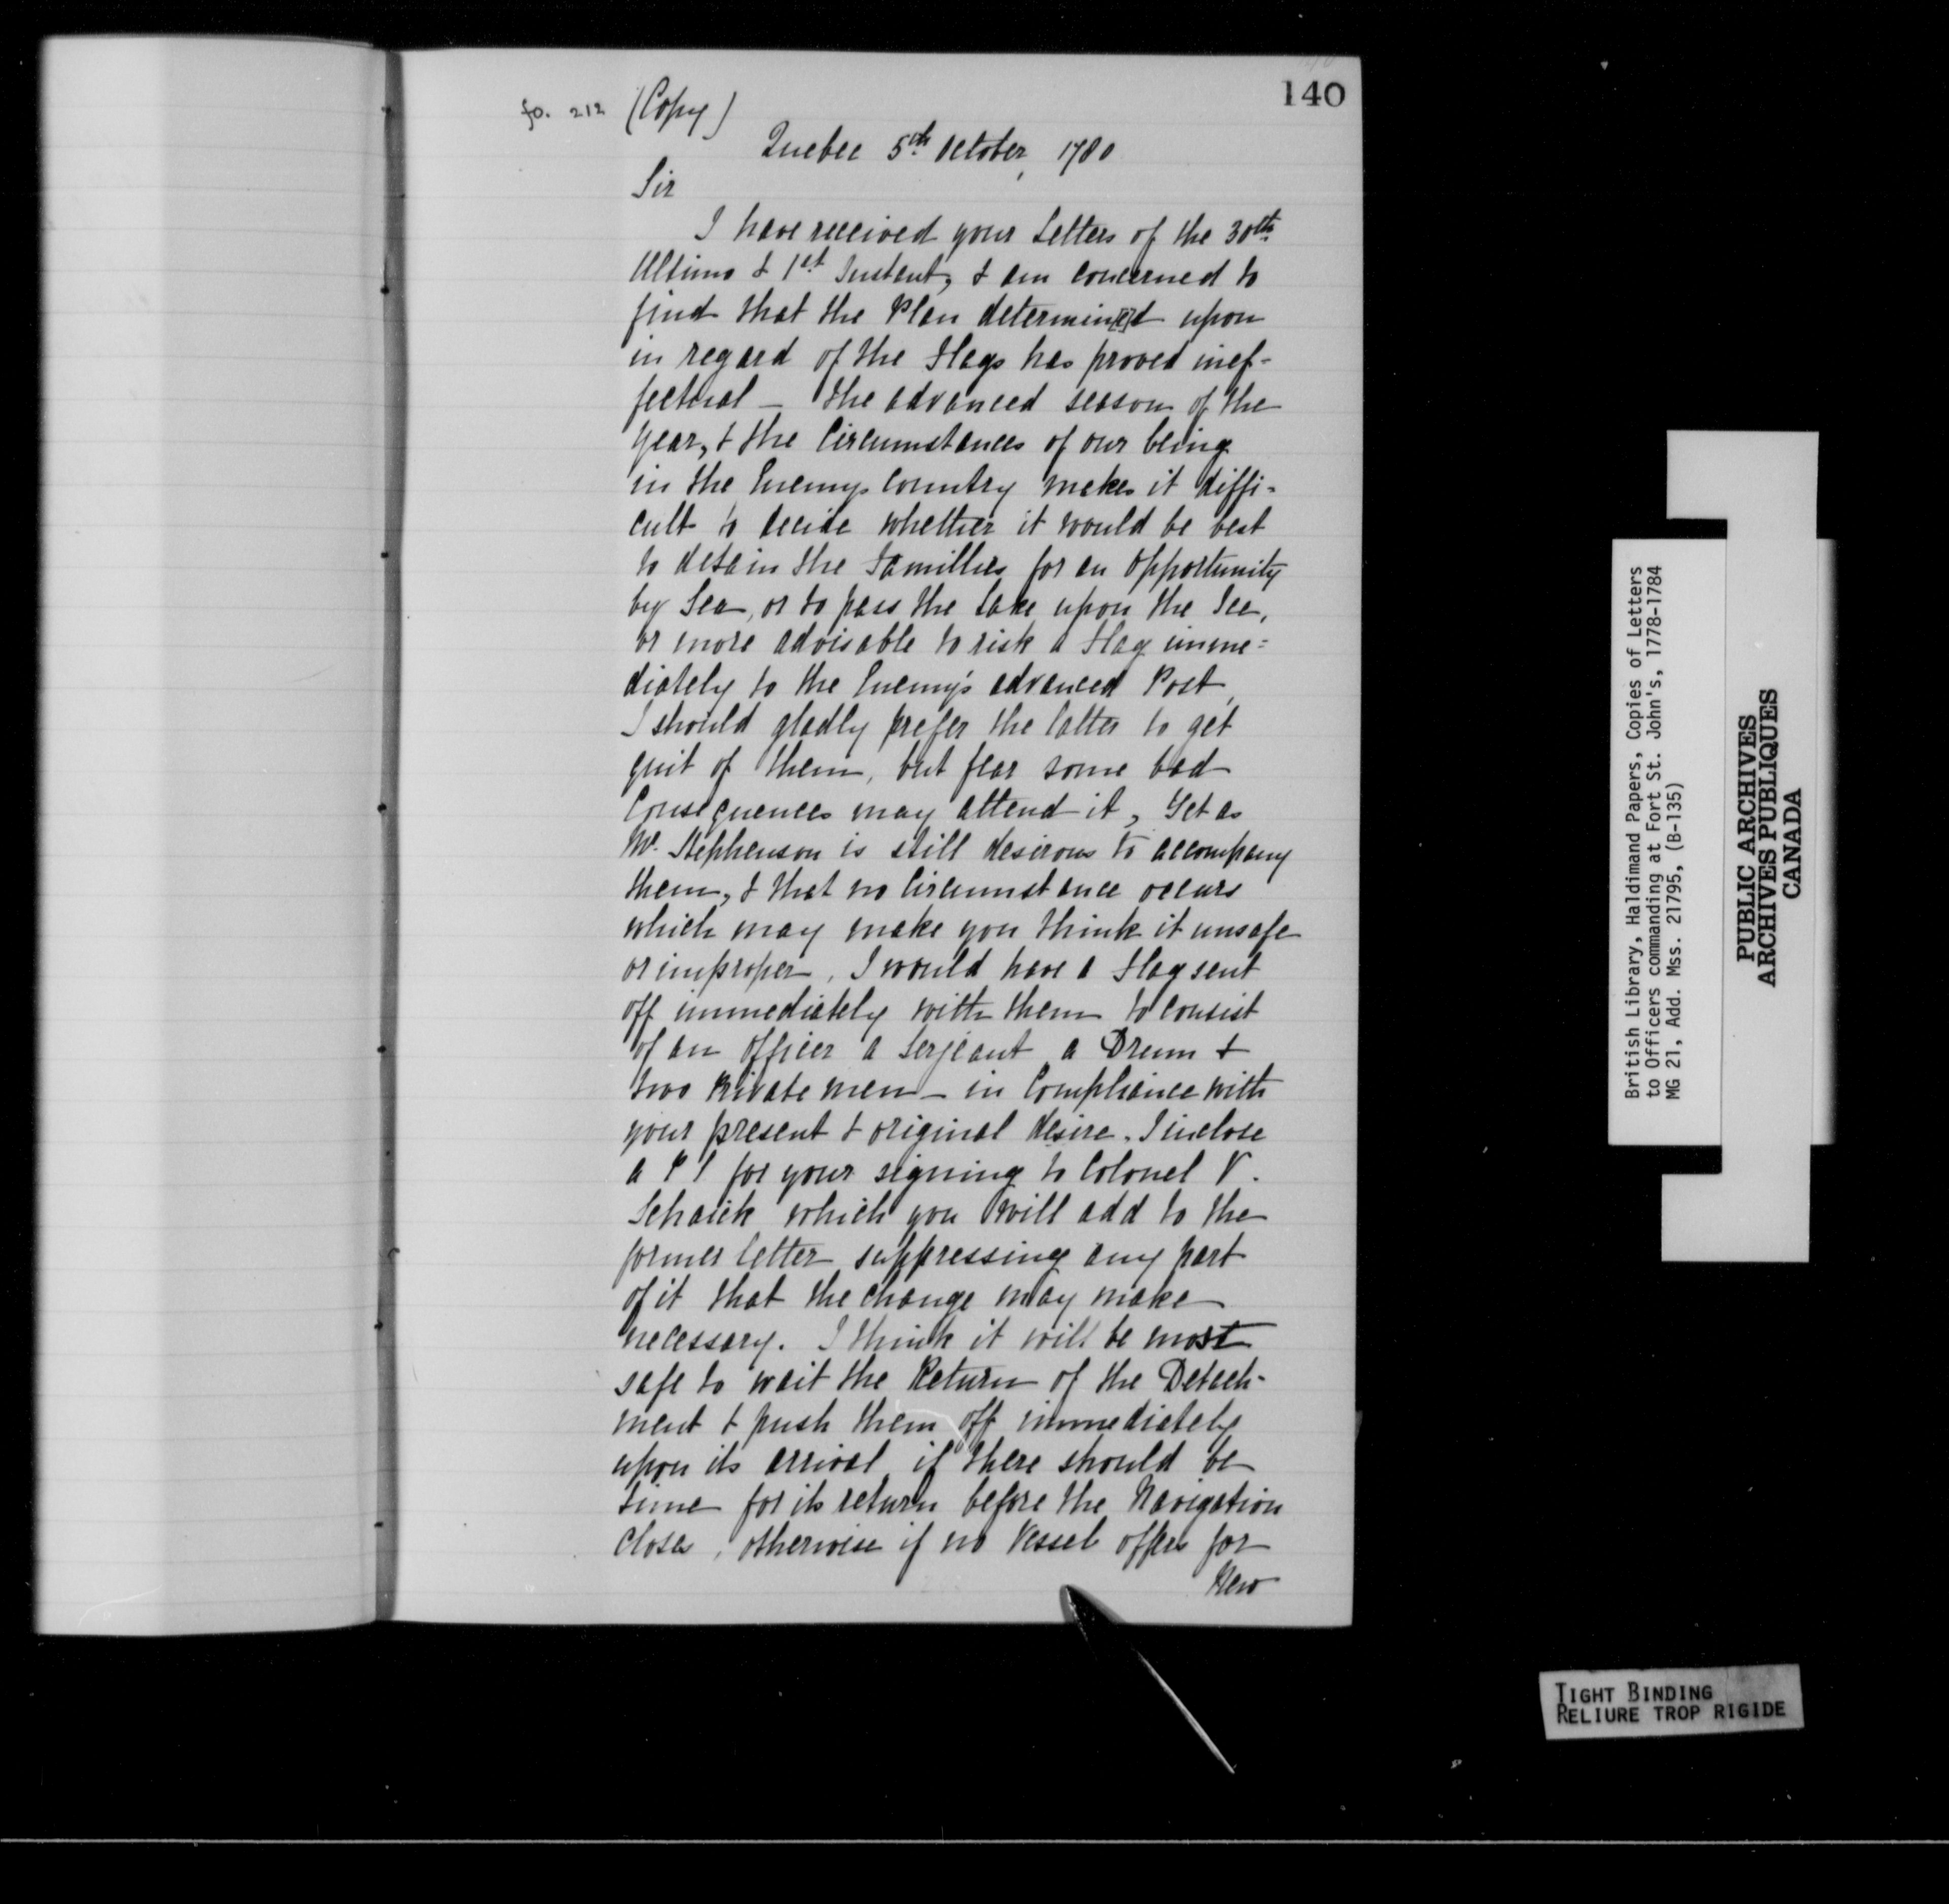 140
fo. 212 (Copy)
Quebec 5th October, 1780
Sir
I have received your Letters of the 30th
Ultimo & 1st Instant, & am concerned to
find that the Plan determin[e]d upon
in regard of the Flags has proved inef-
fectual - The advanced season of the
year, & the Circumstances of our being
in the Enemys Country makes it diffi-
cult to decide whether it would be best
to detain the Families for an Opportunity
by Sea, or to pass the Lake upon the Ice,
or more advisable to risk a Flag imme=
diately to the Enemy's advanced Post,
I should gladly prefer the latter to get
quit of them, but fear some bad
Consequences may attend it, Yet as
Mr. Stephenson is still desirous to accompany
them, & that no Circumstance occurs
which may make you think it unsafe
or improper, I would have a Flag sent
off immediately with them to consist
of an Officer a Serjeant a Drum &
two Private men - in Compliance with
your present & original desire. I inclose
a P S for your signing to Colonel V.
Schaick which you will add to the
former letter suppressing any part
of it that the change may make
necessary. I think it will be most
safe to wait the Return of the Detach-
ment & push them off immediately
upon its arrival if there should be
time for its return before the Navigation
closes, otherwise if no Vessel offers for
New
British Library, Haldimand Papers, Copies of Letters
to Officers commanding at Fort St. John's, 1778-1784
MG 21, Add. Mss. 21795, (B-135)
PUBLIC ARCHIVES
ARCHIVES PUBLIQUES
CANADA
TIGHT BINDING
RELIURE TROP RIGIDE